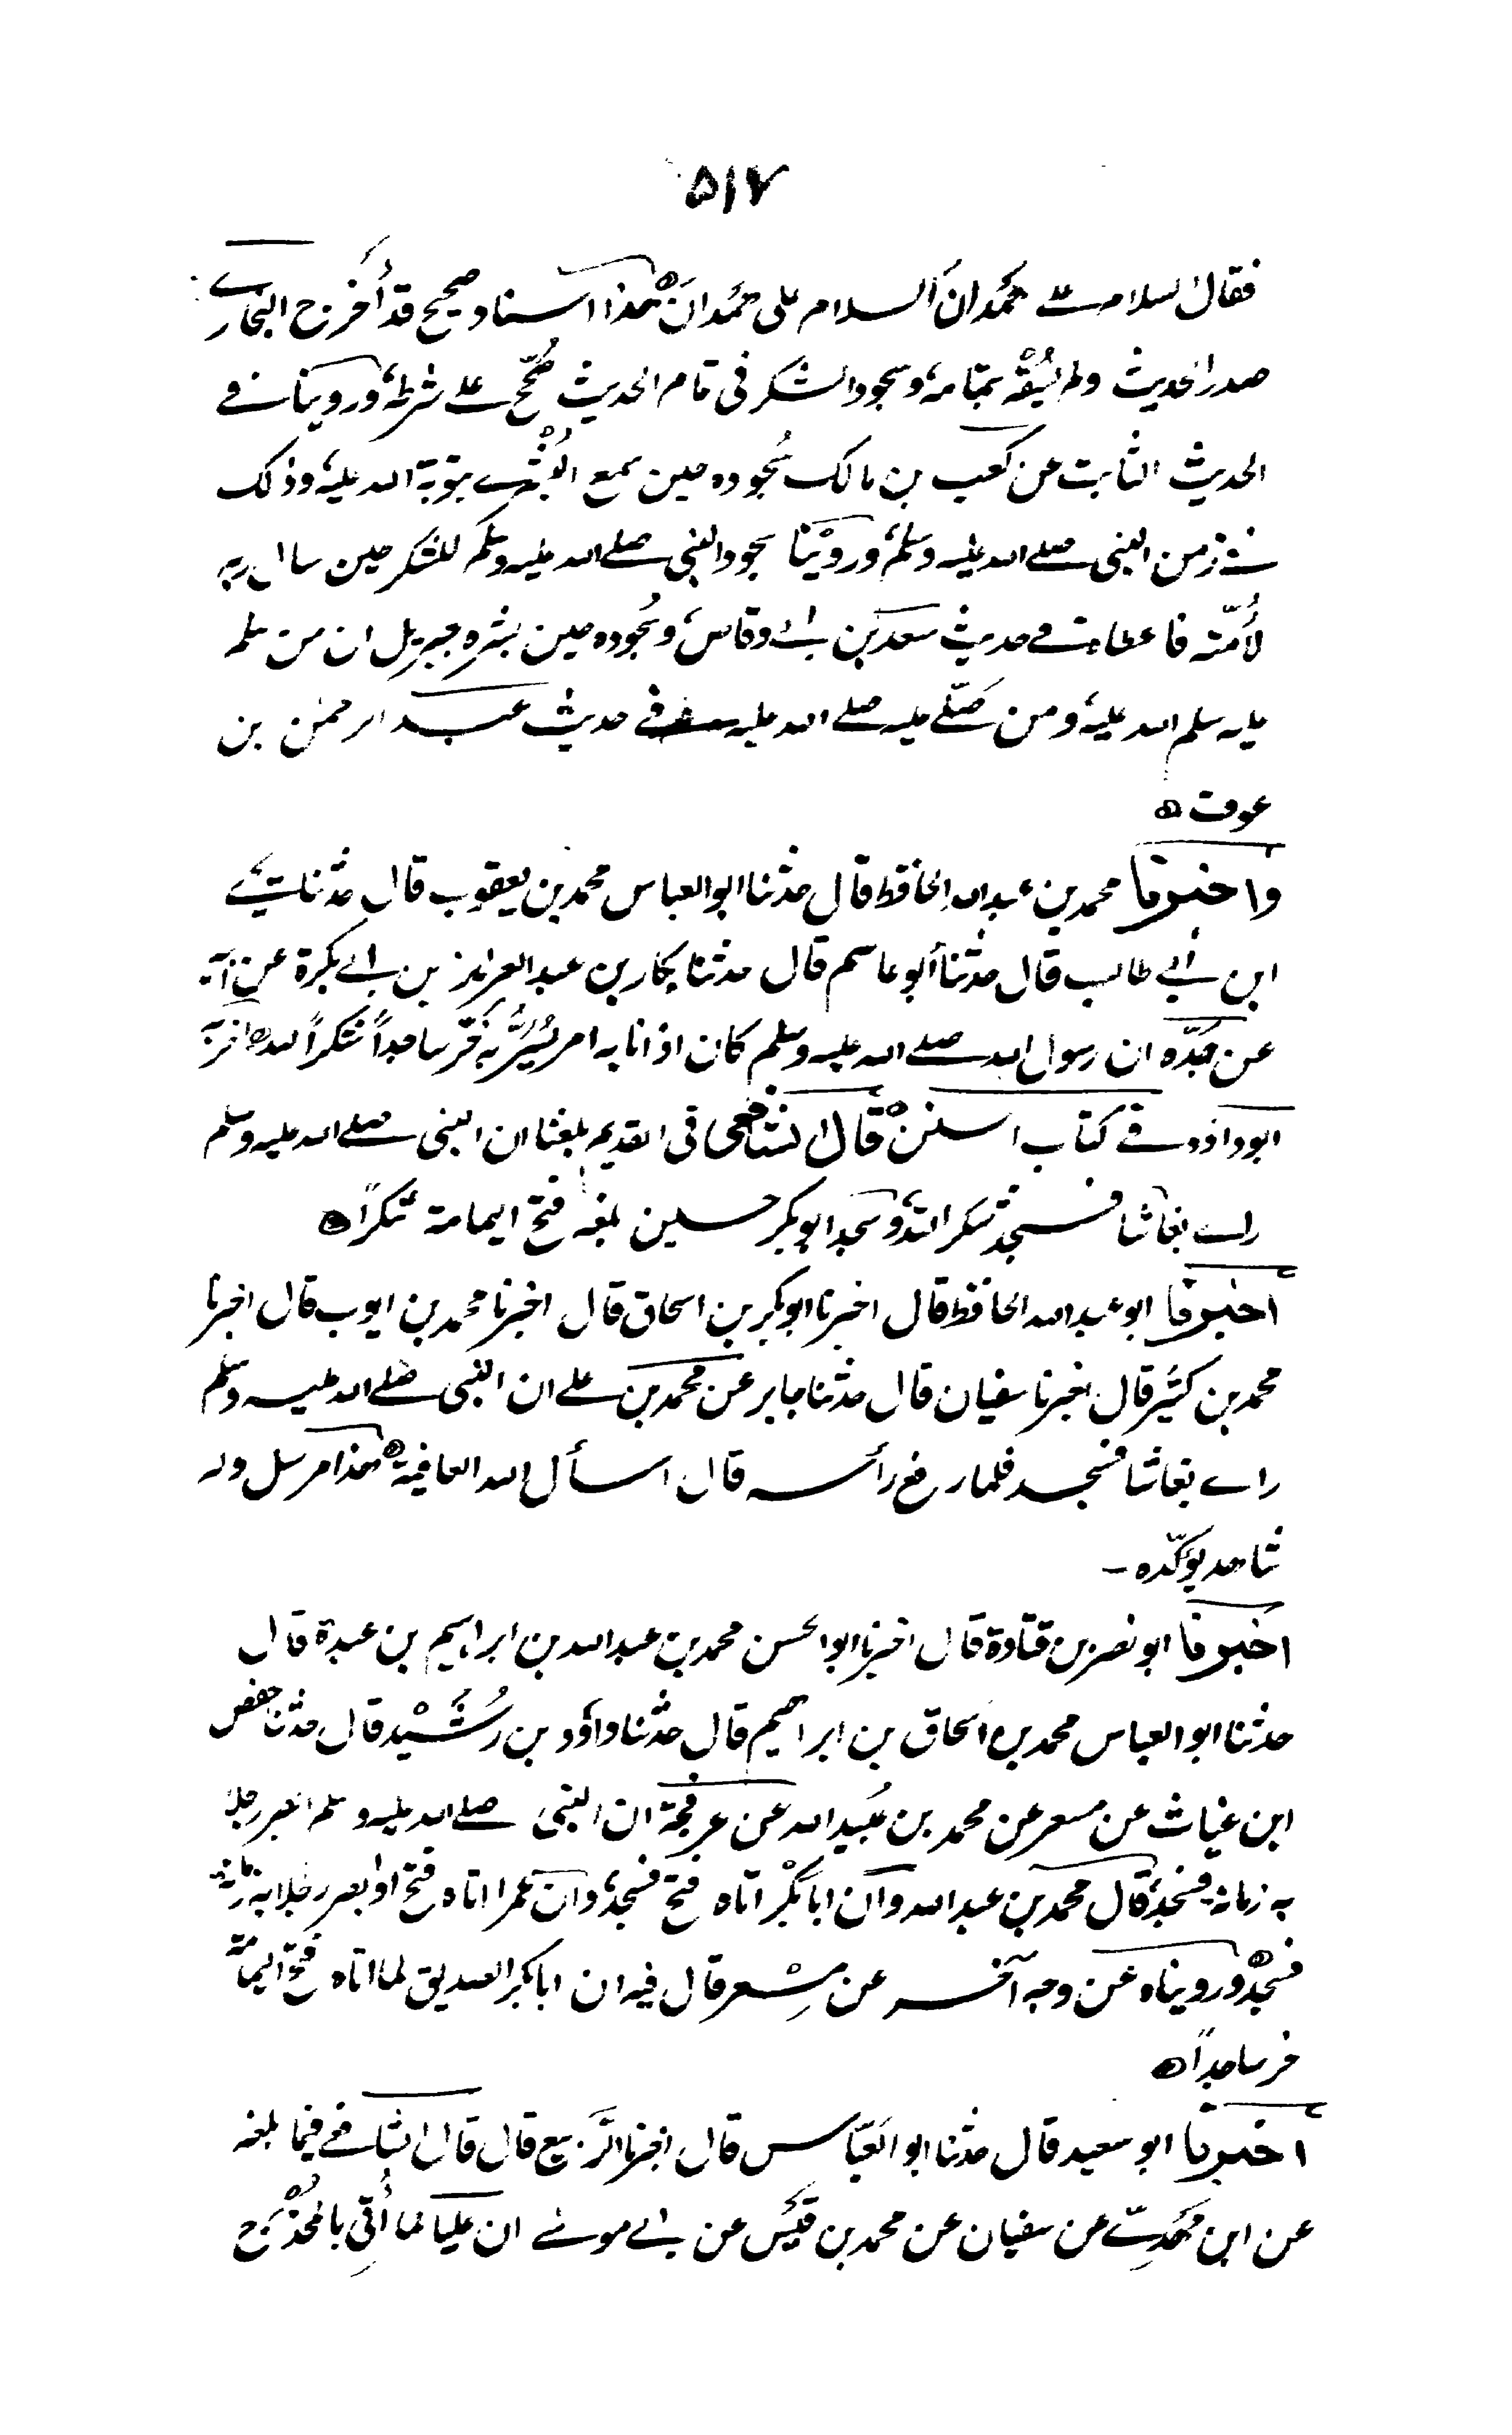 ٥١٧
فقال السلام على همدان السلام على همدان ه هذا اسناد صحيح قد أخرج البخارى
صدر الحديث ولم يسقه بتمامه، وسجود الشكر فى تمام الحديث صحيح على شرطه، وروينا فى
الحديث الثابت عن كعب بن مالك سجوده حين سمع البشرى بتوبة الله عليه، وذلك
فى زمن النبى صلى الله عليه وسلم، وروينا سجود النبى صلى الله عليه وسلم للشكر حين سال ربه
لأمته فاعطاه فى حديث سعد بن ابى وقاص، وسجوده حين بشره جبريل ان من سلم
عليه سلم الله عليه، ومن صلى عليه صلى الله عليه فى حديث عبد الرحمن بن
عوف ه
واخبرنا محمد بن عبد الله الحافظ قال حدثنا ابو العباس محمد بن يعقوب قال حدثنا يحيى
ابن أبى طالب قال حدثنا أبو عاصم قال حدثنا بكار بن عبد العزيز بن ابى بكرة عن أبيه
عن جده ان رسول الله صلى الله عليه وسلم كان اذا اتاه امر يسر به خر ساجداً شكراً لله ه اخرجه
ابو داؤد فى كتاب السنن ه قال الشافعى فى القديم بلغنا ان النبى صلى الله عليه وسلم
راى نغاشا فسجد شكر الله، وسجد ابو بكر حين بلغه فتح اليمامة شكراً ه
اخبرنا ابو عبد الله الحافظ قال اخبرنا ابو بكر بن اسحاق قال اخبرنا محمد بن ايوب قال اخبرنا
محمد بن كثير قال اخبرنا سفيان قال حدثنا جابر عن محمد بن على ان النبى صلى الله عليه وسلم
راى نغاشا فسجد فلما رفع رأسه قال اسأل الله العافية ه هذا مرسل وله
شاهد يؤكده -
اخبرنا ابو نصر بن قتادة قال اخبرنا ابو الحسن محمد بن عبد الله بن ابراهيم بن عبدة قال
حدثنا ابو العباس محمد بن اسحاق بن ابراهيم قال حدثنا داؤد بن رُشَيْد قال حدثنا حفص
ابن غياث عن مسعر عن محمد بن عُبَيد الله عن عرفجة ان النبى صلى الله عليه وسلم ابصر رجلا
به زمانة فسجد، قال محمد بن عبد الله وأن ابا بكر اتاه فتح فسجد، وأن عمر اتاه فتح او ابصر رجلا به زمانة
فسجد ه وروينا ه عن وجه آخر عن مِسْعر قال فيه ان ابا بكر الصديق لما اتاه فتح اليمامة
خر ساجداً ه
اخبرنا ابو سعيد قال حدثنا ابو العباس قال اخبرنا الربيع قال قال الشافعى فيما بلغه
عن ابن مهدىّ عن سفيان عن محمد بن قيس عن ابى موسى ان عليا لما أُتِى بالمخدج